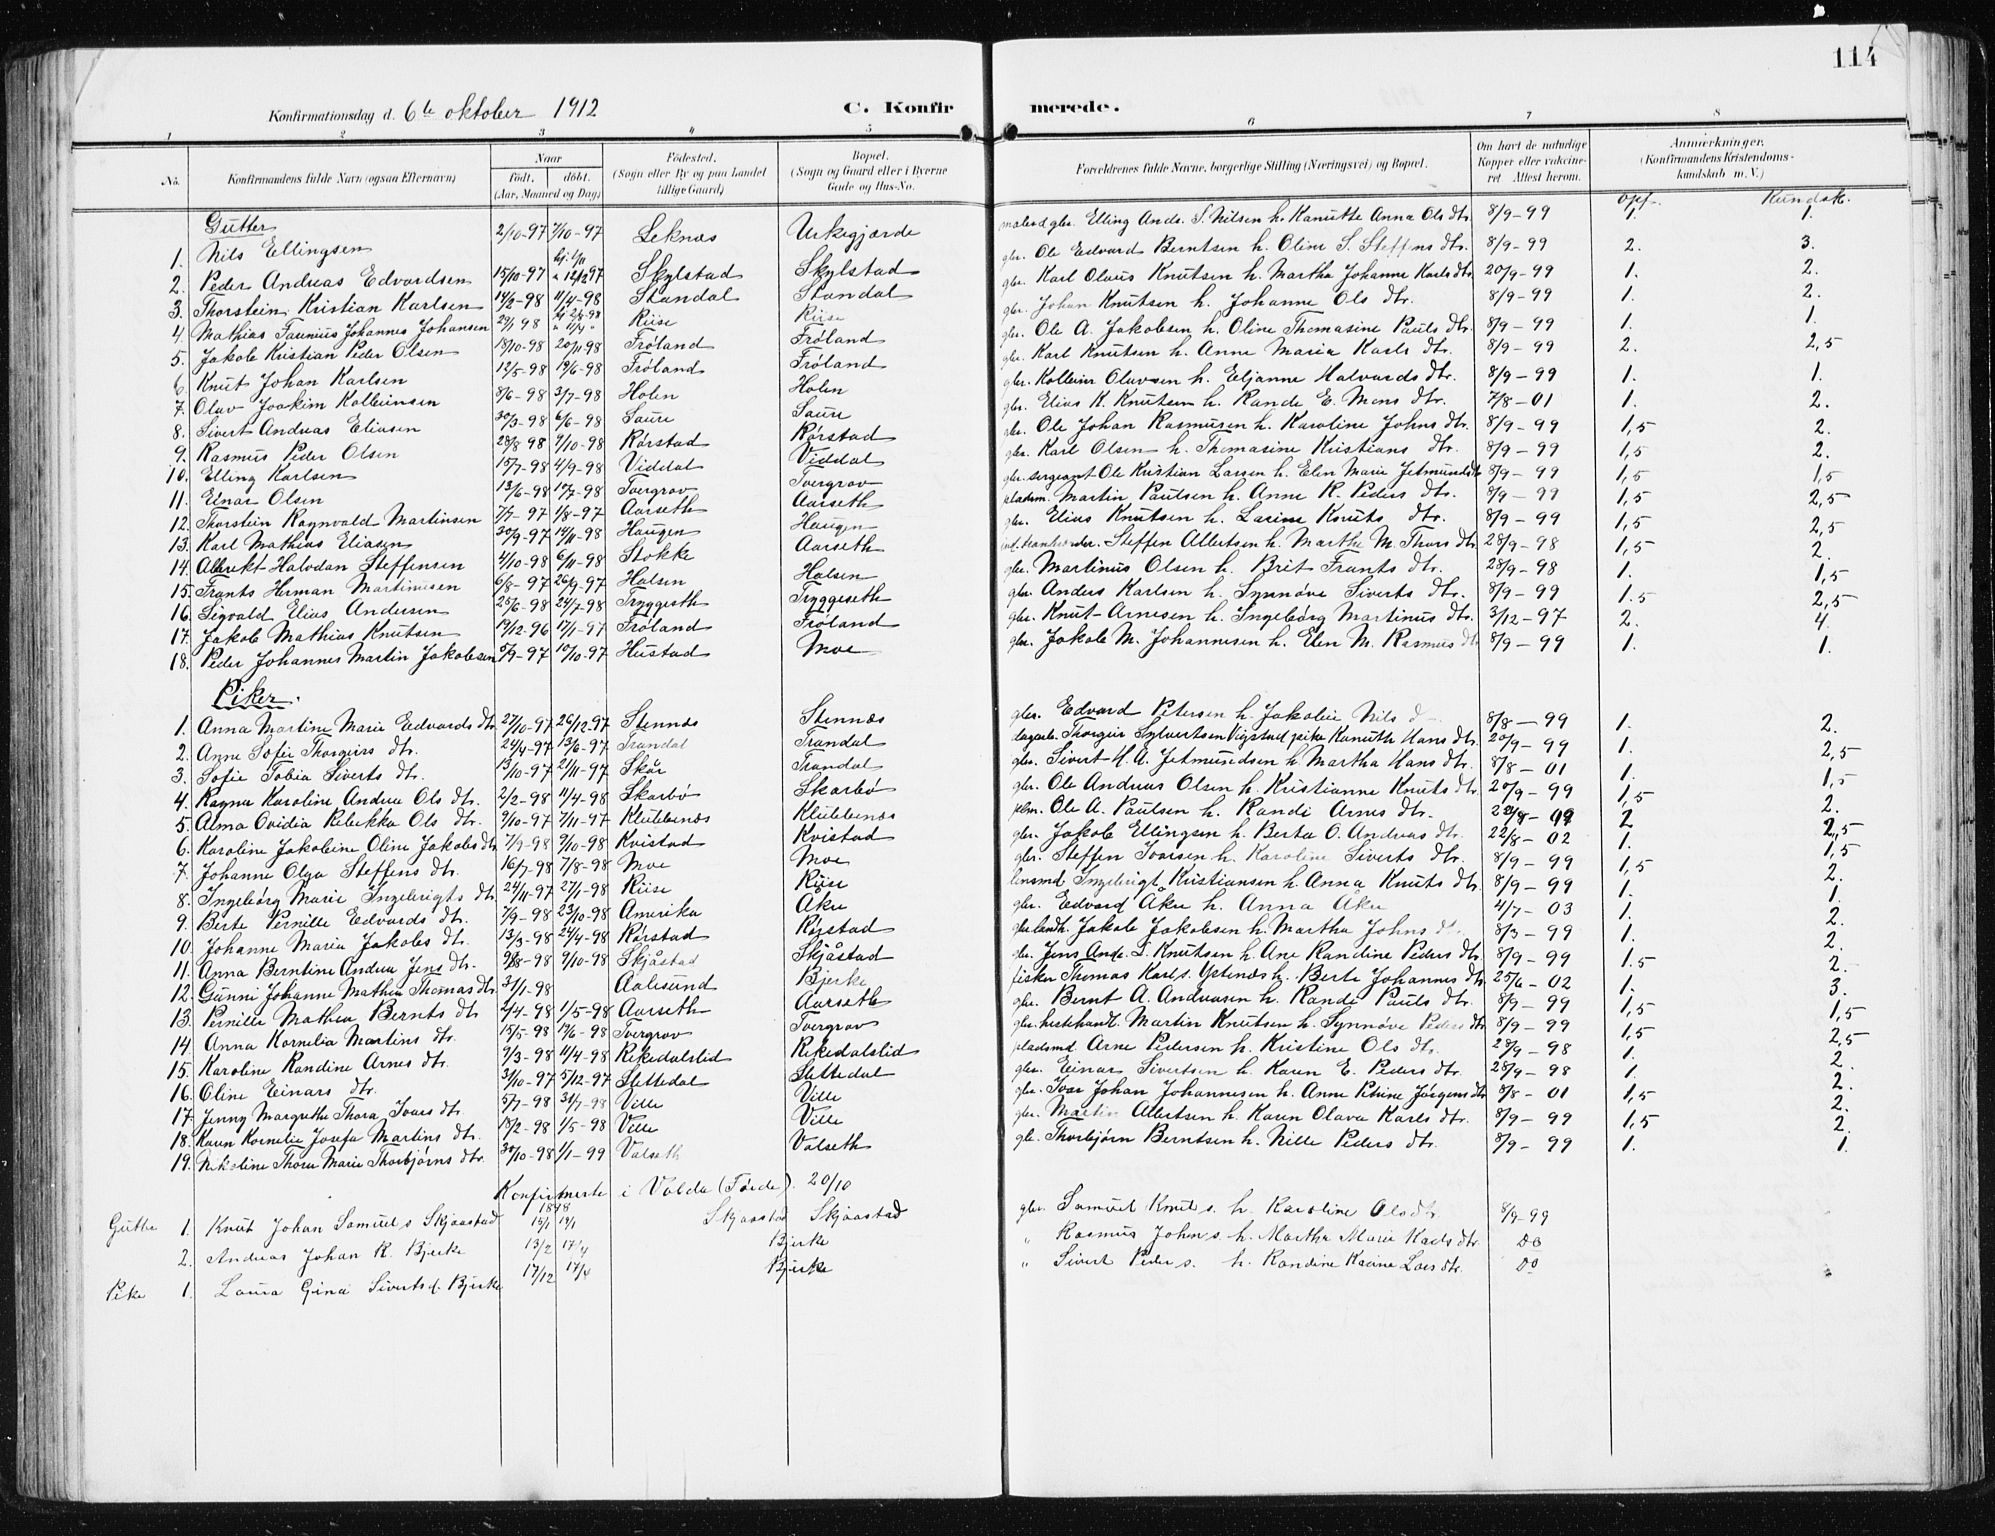 114
Konfirmationsdag d. 6te oktober 1912 C. Konfirmerede.
1 2 3 4 5 6 7 8
No. Konfirmandens fulde Navn (ogsaa Efternavn) Naar Født. døbt. (Aar, Maaned og Dag) Fødested. (Sogn eller By og paa Landet tillige Gaard) Bopæl. (Sogn og Gaard eller i Byerne Gade og Hus-No. Forældrenes fulde Navne, borgerlige Stilling (Næringsvei) og Bopæl. Om havt de naturlige Kopper eller vaccineret. Attest herom. Anmærkninger. (Konfirmandens Kristendomskundskab m. V.)
opf. Kundsk.
Gutter
1. Nils Ellingsen 2/10-97 7/10-97 Leknes Urkegjærde Elling Ands. S. Nilsen h. Kanutte Anna Ols dtr. 8/9-99 1. 1.
2. Peder Andreas Edvardsen 15/10-97 Skylstad Skylstad gbr. Ole Edvard Berntsen h. Oline S. Steffens dtr. 8/9-99 2. 3.
3. Thorstein Kristian Karlsen 14/2-98 11/4-98 Standal Standal gbr. Karl Olaus Knutsen h. Martha Johanne Karls dtr. 20/9-99 1. 2.
4. Mathias Johannes Johansen Riise Riise gbr. Johan Knutsen h. Johanne Ols dtr. 8/9-99 1. 2.
5. Jakob Kristian Peder Olsen 18/10-98 20/11-98 Frøland Frøland gbr. Ole A. Jakobsen h. Oline Thomasine Pauls dtr. 8/9-99 1. 1.
6. Knut Johan Karlsen 12/5-98 19/6-98 Frøland Frøland gbr. Karl Knutsen h. Anne Maria Karls dtr. 8/9-99 2. 2,5
7. Olav Joakim Kolbeinsen 8/6-98 3/7-98 Holen Holen gbr. Kolbein Olavsen h. Eljanne Halvards dtr. 8/9-99 1. 1.
8. Sivert Andreas Eliasen 30/3-98 6/6-98 Saure Saure gbr. Elias K. Knutsen h. Rande E. Mons dtr. 7/8-01 1. 2.
9. Rasmus Peder Olsen 28/8-98 9/10-98 Rørstad Rørstad gbr. Ole Johan Rasmusen h. Karoline Johns dtr. 8/9-99 1,5 2.
10. Elling Karlsen 15/7-98 4/9-98 Viddal Viddal gbr. Karl Olsen h. Thomasine Kristians dtr. 8/9-99 1,5 2.
11. Einar Olsen 13/6-98 10/7-98 Tvergrov Tvergrov gbr. sergeant Ole Kristian Larsen h. Elen Marie Jetmunds dtr 8/9-99 1,5 1,5
12. Thorstein Ragnvald Martinsen 7/7-97 1/8-97 Aarseth Aarseth pladsm. Martin Paulsen h. Anne R. Peders dtr. 8/9-99 1,5 2,5
13. Karl Mathias Eliasen 30/9-97 14/11-98 Haugen Haugen gbr. Elias Knutsen h. Lasine Knuts dtr. 8/9-99 1,5 2,5
14. Albrekt Halvdan Steffensen 4/10-98 6/11-98 Stokke Aarseth Steffen Albertsen h. Marthe M. Thors dtr 28/9-98 1,5 2.
15. Frants Herman Martinusen 6/8-97 26/9-97 Halsen Halsen gbr. Martinus Olsen h. Brit Frants dtr. 28/9-98 1. 1,5
16. Sigvald Elias Andersen 25/6-98 24/7-98 Tryggeseth Tryggeseth gbr. Anders Karlsen h. Synnøve Siverts dtr. 8/9-99 1.5 2,5
17. Jakob Mathias Knutsen 19/12-96 17/1-97 Frøland Frøland gbr. Knut Arnesen h. Ingebørg Martinus dtr. 3/12-97 2. 4.
18. Peder Johannes Martin Jakobsen 5/9-97 10/10-97 Hustad Moe gbr. Jakob M. Johannesen h. Elen M. Rasmus dtr 8/9-99 1. 1.
Piker.
1. Anna Martine Marie Edvards dtr. 27/10-97 26/12-97 Stennes Stennes gbr. Edvard Petersen h. Jakobie Nils d 8/8-99 1. 2.
2. Anne Sofie Thorgeirs dtr. 24/4-97 13/6-97 Trandal Trandal Thorgeir Sylvertsen Vigstad pike Kanuth Hans dtr. 20/9-99 1. 2,5
3. Sofie Tobia Siverts dtr. 13/10-97 21/11-97 Skår Trandal gbr. Sivert H.A. Jetmundsen h. Martha Hans dtr. 8/8-01 1. 1,5
4. Ragna Karoline Andrea Ols dtr. 2/2-98 11/4-98 Skarbø Skarbø gbr. Ole Andreas Olsen h. Kristianne Knuts dtr. 20/9-99 1,5 2.
5. Alma Ovidia Rebekka Ols dtr. 9/10-97 7/11-97 Klubbenes Klubbenes plm. Ole A. Paulsen h. Randi Arnes dtr. 2 2,5
6. Karoline Jakobine Oline Jakobs dtr 7/9-98 9/10-98 Kvistad Kvistad gbr. Jakob Ellingsen h. Berta O. Andreas dtr. 22/8-02 1. 1,5
7. Johanne Olga Steffens dtr. 16/7-98 7/8-98 Moe Moe gbr. Steffen Ivarsen h. Karoline Siverts dtr. 8/9-99 1,5 2.
8. Ingebørg Marie Ingebrigts dtr 24/11-97 27/1-98 Riise Riise lensmd Ingebrigt Kristiansen h. Anna Knuts dtr. 8/9-99 1. 1.
9. Berte Pernille Edvards dtr. 7/9-98 23/10-98 Amerika Åkre gbr. Edvard Åkre h. Anna Åkre 4/7-03 1. 2.
10. Johanne Maria Jakobs dtr. 13/3-98 24/4-98 Rørstad Rørstad Jakob Jakobsen h. Martha Johns dtr 8/3-99 1. 2.
11. Anna Berntine Andrea Jens dtr. 9/10-98 Skjåstad Skjåstad gbr. Jens Ands. L. Knutsen h. Ane Randine Peders dtr. 8/9-99 1.5 2.
12. Gunni Johanne Mathea Thomas dtr. 31/1-98 Aalesund Bjerke fisker Thomas Karl s. h. Berte Johannes dtr 25/6-02 1. 3.
13. Pernille Mathea Bernts dtr 2/4-98 1/5-98 Aarseth Aarseth gbr. Bernt A. Andreasen h. Rande Pauls dtr. 8/9-99 1,5 1,5
14. Anna Kornelia Martins dtr. 15/5-98 19/6-98 Tvergrov Tvergrov gbr. hestehandl. Martin Knutsen h. Synnøve Peders dtr 8/9-99 1,5 2,5
15. Karoline Randine Arnes dtr. 7/3-98 11/4-98 Rekedalslid Rekedalslid pladsmd Arne Pedersen h. Kristine Ols dtr. 28/9-98 1. 2.
16. Oline Einars dtr. 31/10-97 5/12-97 Slettedal Slettedal gbr. Einar Sivertsen h. Karen E. Peders dtr. 28/9-98 1. 2.
17. Jenny Margrethe Thora Ivars dtr 5/7-98 31/7-98 Ville Ville gbr. Ivar Johan Johannesen h. Anne Petrine Jørgens dtr 8/8-01 1,5 2.
18. Karen Kornelie Josefa Martins dtr. 18/2-98 1/5-98 Ville Ville gbr. Martin Albertsen h. Karen Olava Karls dtr. 8/9-99 1,5 2.
19. Nikoline Thora Marie Thorbjørns dtr. 30/10-98 1/1-99 Valseth Valseth gbr. Thorbjørn Berntsen h. Nille Peders dtr. 8/9-99 1. 1.
Konfirmerte i Volda (Førde). 20/10
Gutte 1. Knut Johan Samuel s Skjaastad 15/1 Skjaastad Skjaastad gbr. Samuel Knut s. h. Karoline Olsdtr 8/9-99
2. Andreas Johan R. Bjerke 13/2 17/4 Bjerke " Rasmus John s. h. Martha Marie Karls dtr. Do
Pike 1. Laura Gina Sivertsd. Bjerke 17/12 17/4 Bjerke " Sivert Peder s. h. Randine Lars dtr. Do